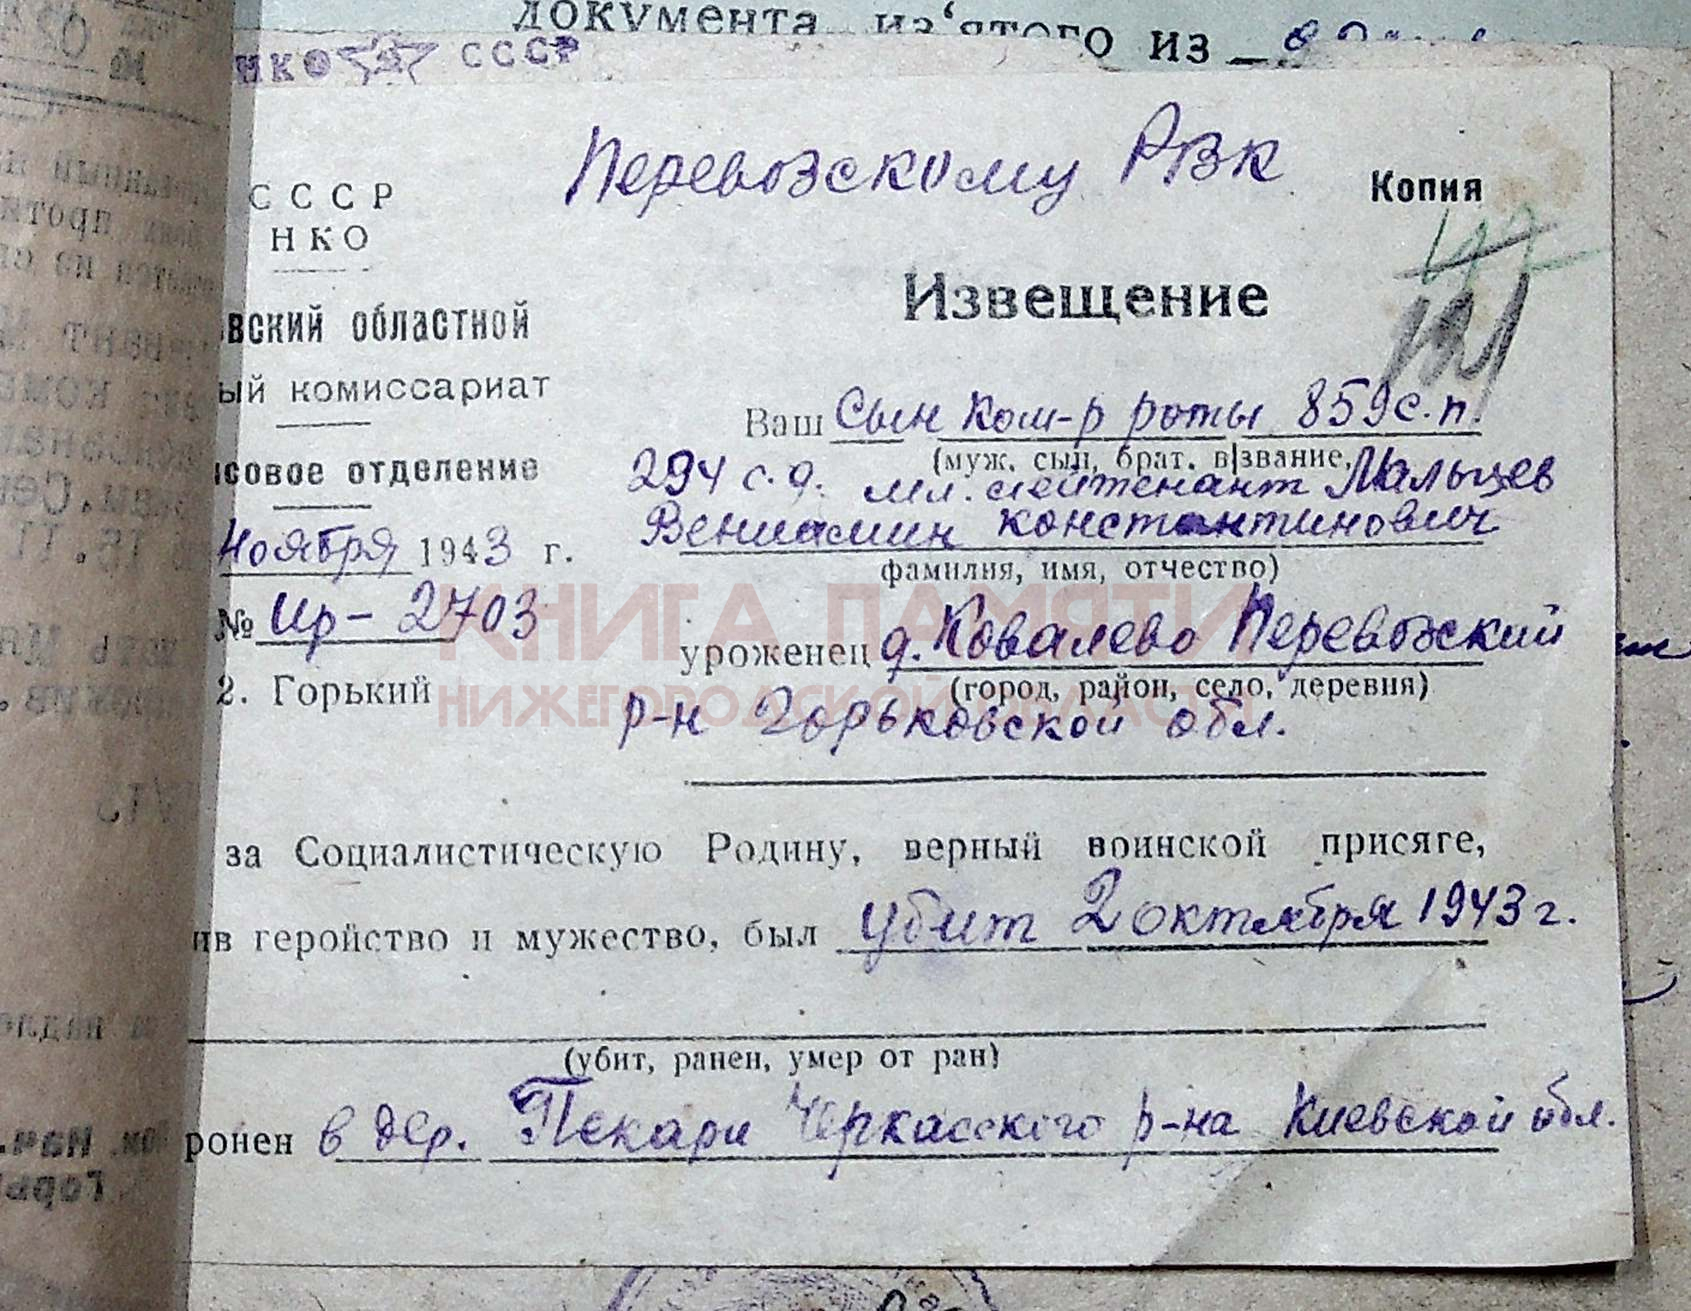 документа из‘ятого из
НКО СССР
Перевозскому РВК
Копия
СССР
НКО
147
121
Извещение
вский областной
ый комиссариат
Ваш Сын ком-р роты 859 с.п.
(муж, сын, брат, в/звание,
совое отделение
294 с.д. мл. лейтенант Мальцев
Вениамин Константинович
Ноября 1943 г.
фамилия, имя, отчество)
№ Ир-2703
уроженец д. Ковалево Перевозский
(город, район, село, деревня)
г. Горький
р-н Горьковской обл.
КНИГА ПАМЯТИ
НИЖЕГОРОДСКОЙ ОБЛАСТИ
за Социалистическую Родину, верный воинской присяге,
ив геройство и мужество, был убит 2 октября 1943 г.
(убит, ранен, умер от ран)
ронен в дер. Пекари Черкасского р-на Киевской обл.